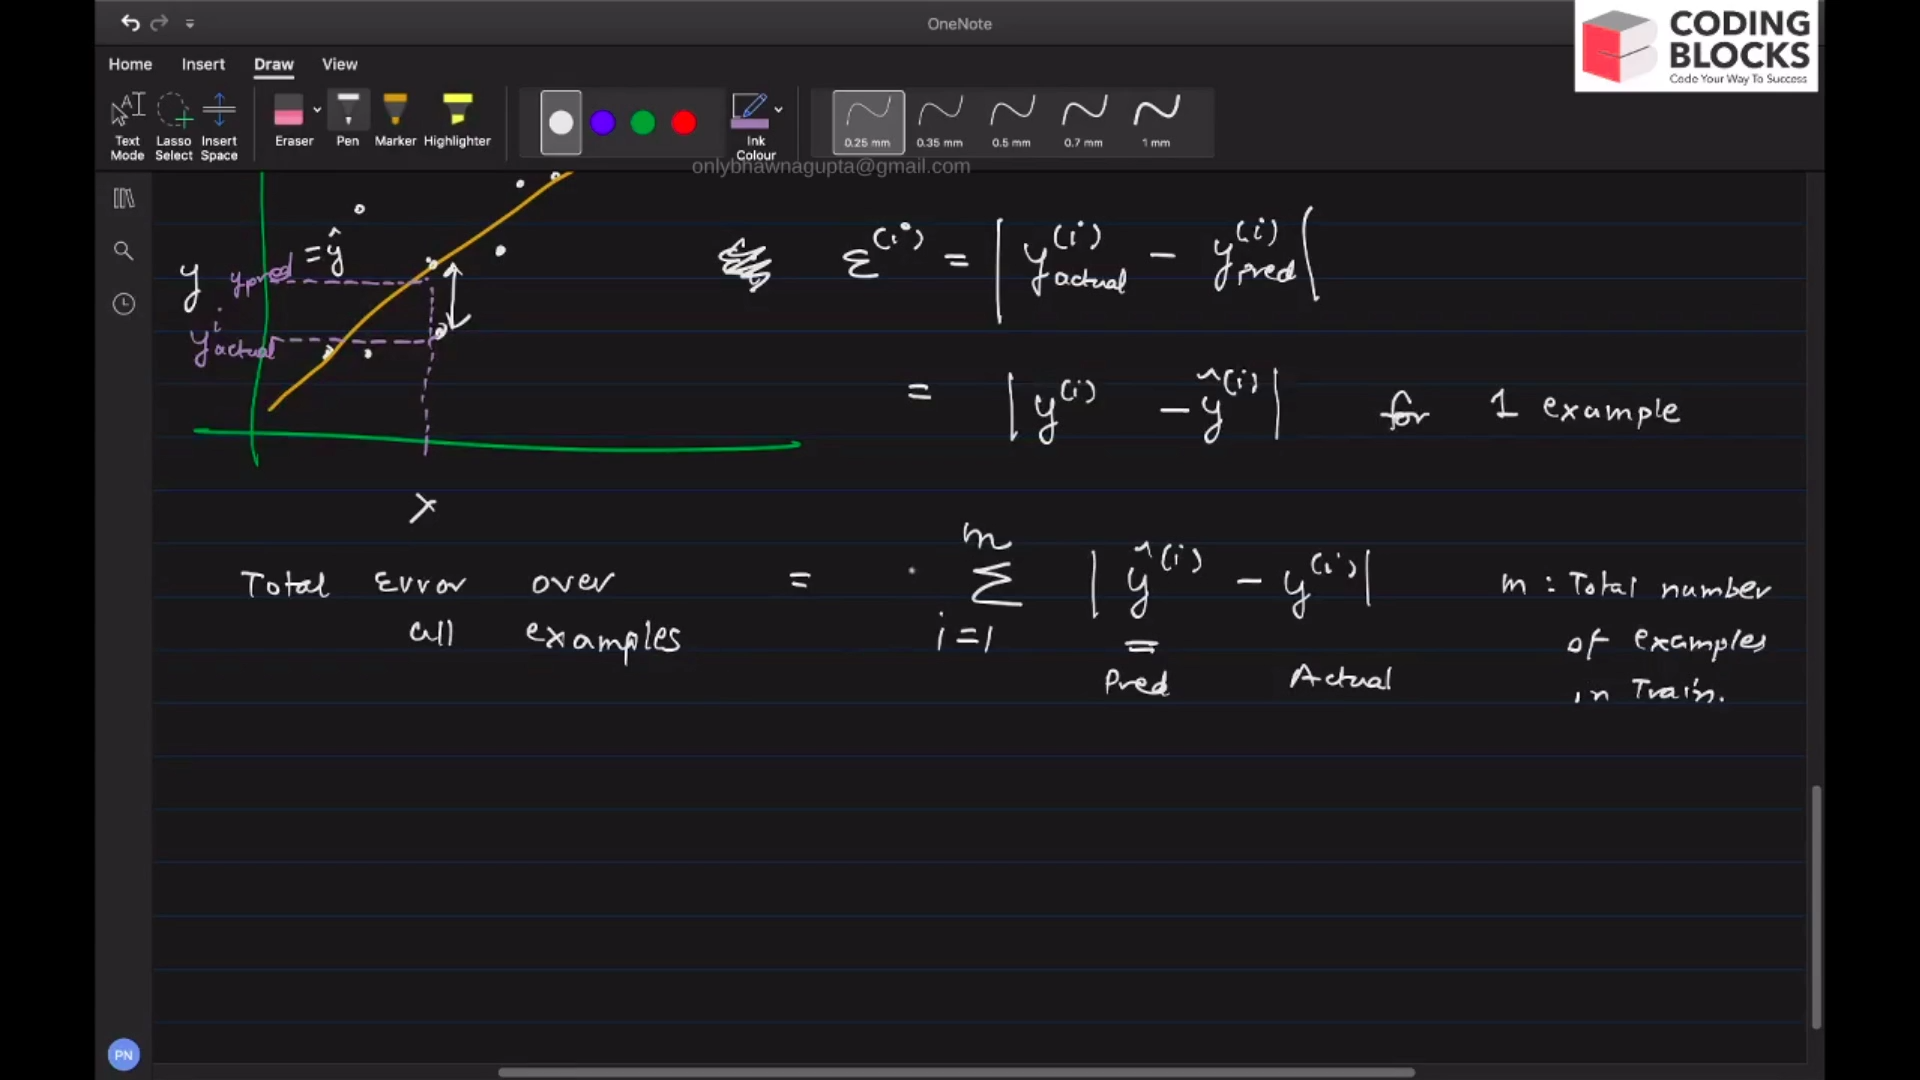 OneNote
CODING
BLOCKS
Code Your Way To Success
Home Insert Draw View
Text Mode
Lasso Select
Insert Space
Eraser
Pen
Marker
Highlighter
Ink Colour
0.25 mm
0.35 mm
0.5 mm
0.7 mm
1 mm
onlybhawnagupta@gmail.com
y
y pred = ŷ
y^i actual
x
ε^(i) = | y^(i) actual - y^(i) pred |
= | y^(i) - ŷ^(i) | for 1 example
Total Error over all examples = m Σ i=1 | ŷ^(i) - y^(i) |
Pred Actual
m : Total number
of examples
in Train.
PN